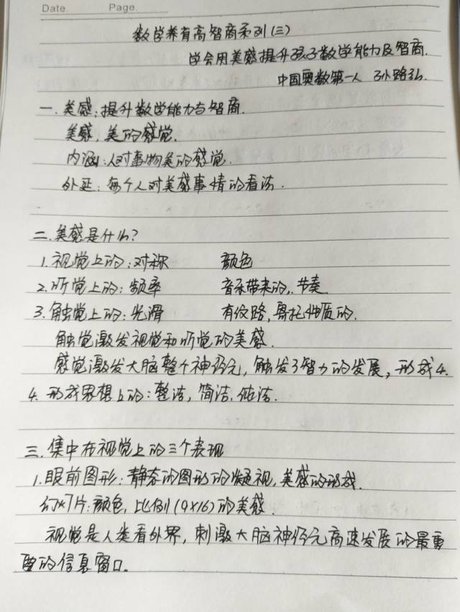 Date Page.
数学养育高智商系列(三)
学会用美感提升孩子数学能力及智商.
中国奥数第一人 孙路弘.
一.美感:提升数学能力与智商.
美感,美的感觉.
内涵:人对事物美的感觉.
外延:每个人对美感事情的看法.
二.美感是什么?
1.视觉上的:对称 颜色
2.听觉上的:频率 音承带来的,节奏
3.触觉上的:光滑 有纹路,摩托性质的.
触觉激发视觉和听觉的美感.
感觉激发大脑整个神经元,触发了智力的发展,形成4.
4.形成思想上的:整洁,简洁.
三.集中在视觉上的三个表现
1.眼前图形:静态的图形的凝视,美感的形成.
幻灯片:颜色,比例(9X16)的美感.
视觉是人类看外界,刺激大脑神经元高速发展的最重
要的信息窗口.